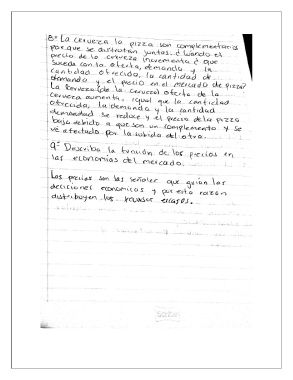 8- La cerveza la pizza son complementarios
porque se disfrutan juntas. ¿ Cuando el
precio de la cerveza incrementa ¿ que
sucede con la oferta, demanda y la
cantidad ofrecida, la cantidad de
demanda y el precio en el mercado de pizza?
La cerveza la oferta de la
cerveza aumenta, igual que la cantidad
ofrecida, la demanda y la cantidad
demandad se reduce y el precio de la pizza
baja debido a que son un complemento y se
ve afectado por la subida del otro.
9- Describa la función de los precios en
las economías del mercado.
Los precios son las señales que guían las
deciciones economicos y por esta razón
distribuyen los recursos escasos.